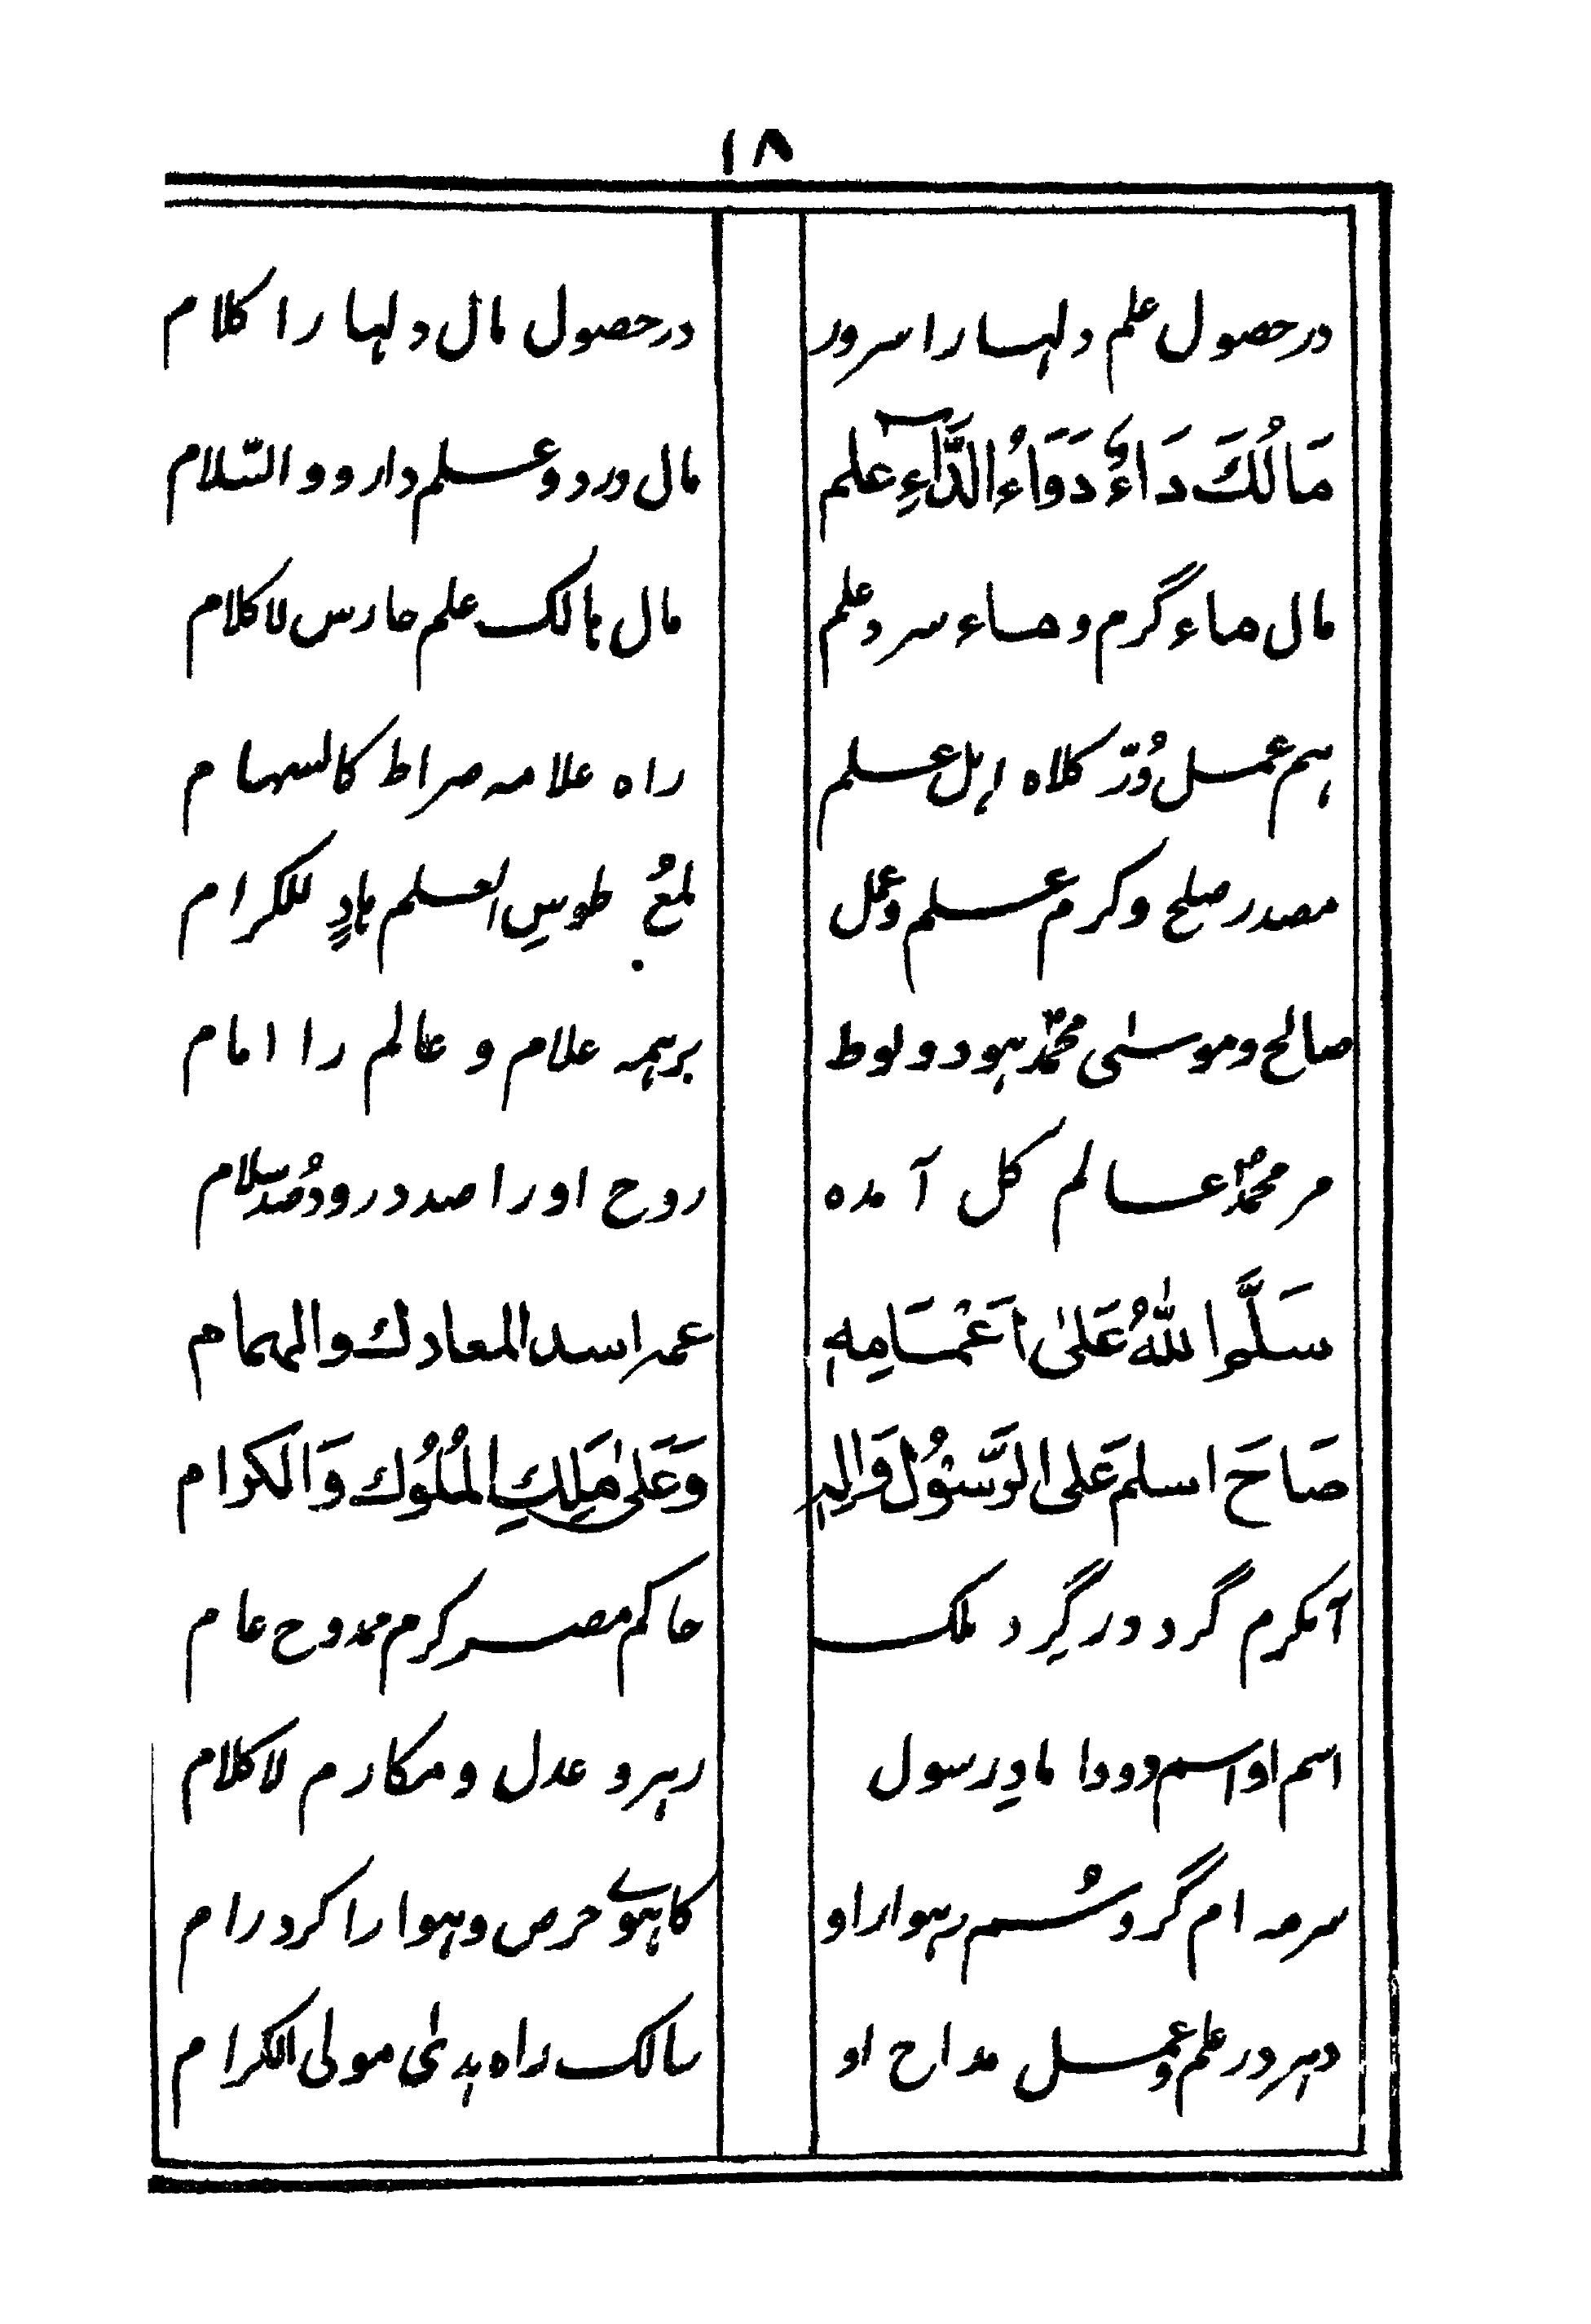 ۱۸
در حصول علم دلہا را سرور در حصول مال دلہا را کلام
مَالُكَ دَاءٌ دَوَاءُ الدَّاءِ علم مال درد و علم دارو و السّلام
مال ھاء گرم و ھاء سرد علم مال مالک علم حارس لا کلام
ہم عمل دُرّ کلاہ اہل علم راہ علامہ صراط کالسہام
مصدر صلح و کرم علم و عمل لمعُ طوسِ العلم ہادٍ للکرام
صالح و موسٰی محمدؐ ہود و لوط بر ہمہ علام و عالم را امام
مر محمدؐ عالم کل آمدہ روح او را صد درود و صد سلام
سَلَّم اللهُ عَلىٰ اَعْمَامِهٖ عمہ اسد المعادك والہمام
صَاحَ اسلم عَلَى الرَّسُوْل وَالِهٖ وَعَلىٰ مَلِكِ الْمُلُوْك وَالكرام
آمکرم گرد ور گِرد ملک حاکم مصر کرم ممدوح عام
اسم او اسم دودا مادِر رسول رہرو عدل و مکارم لا کلام
سرمہ ام گرد سُم رہوار او کاہوئے حرص و ہوا را کرد رام
دہر در علم و عمل مداح او سالک راہ ہدیٰ مولی الکرام